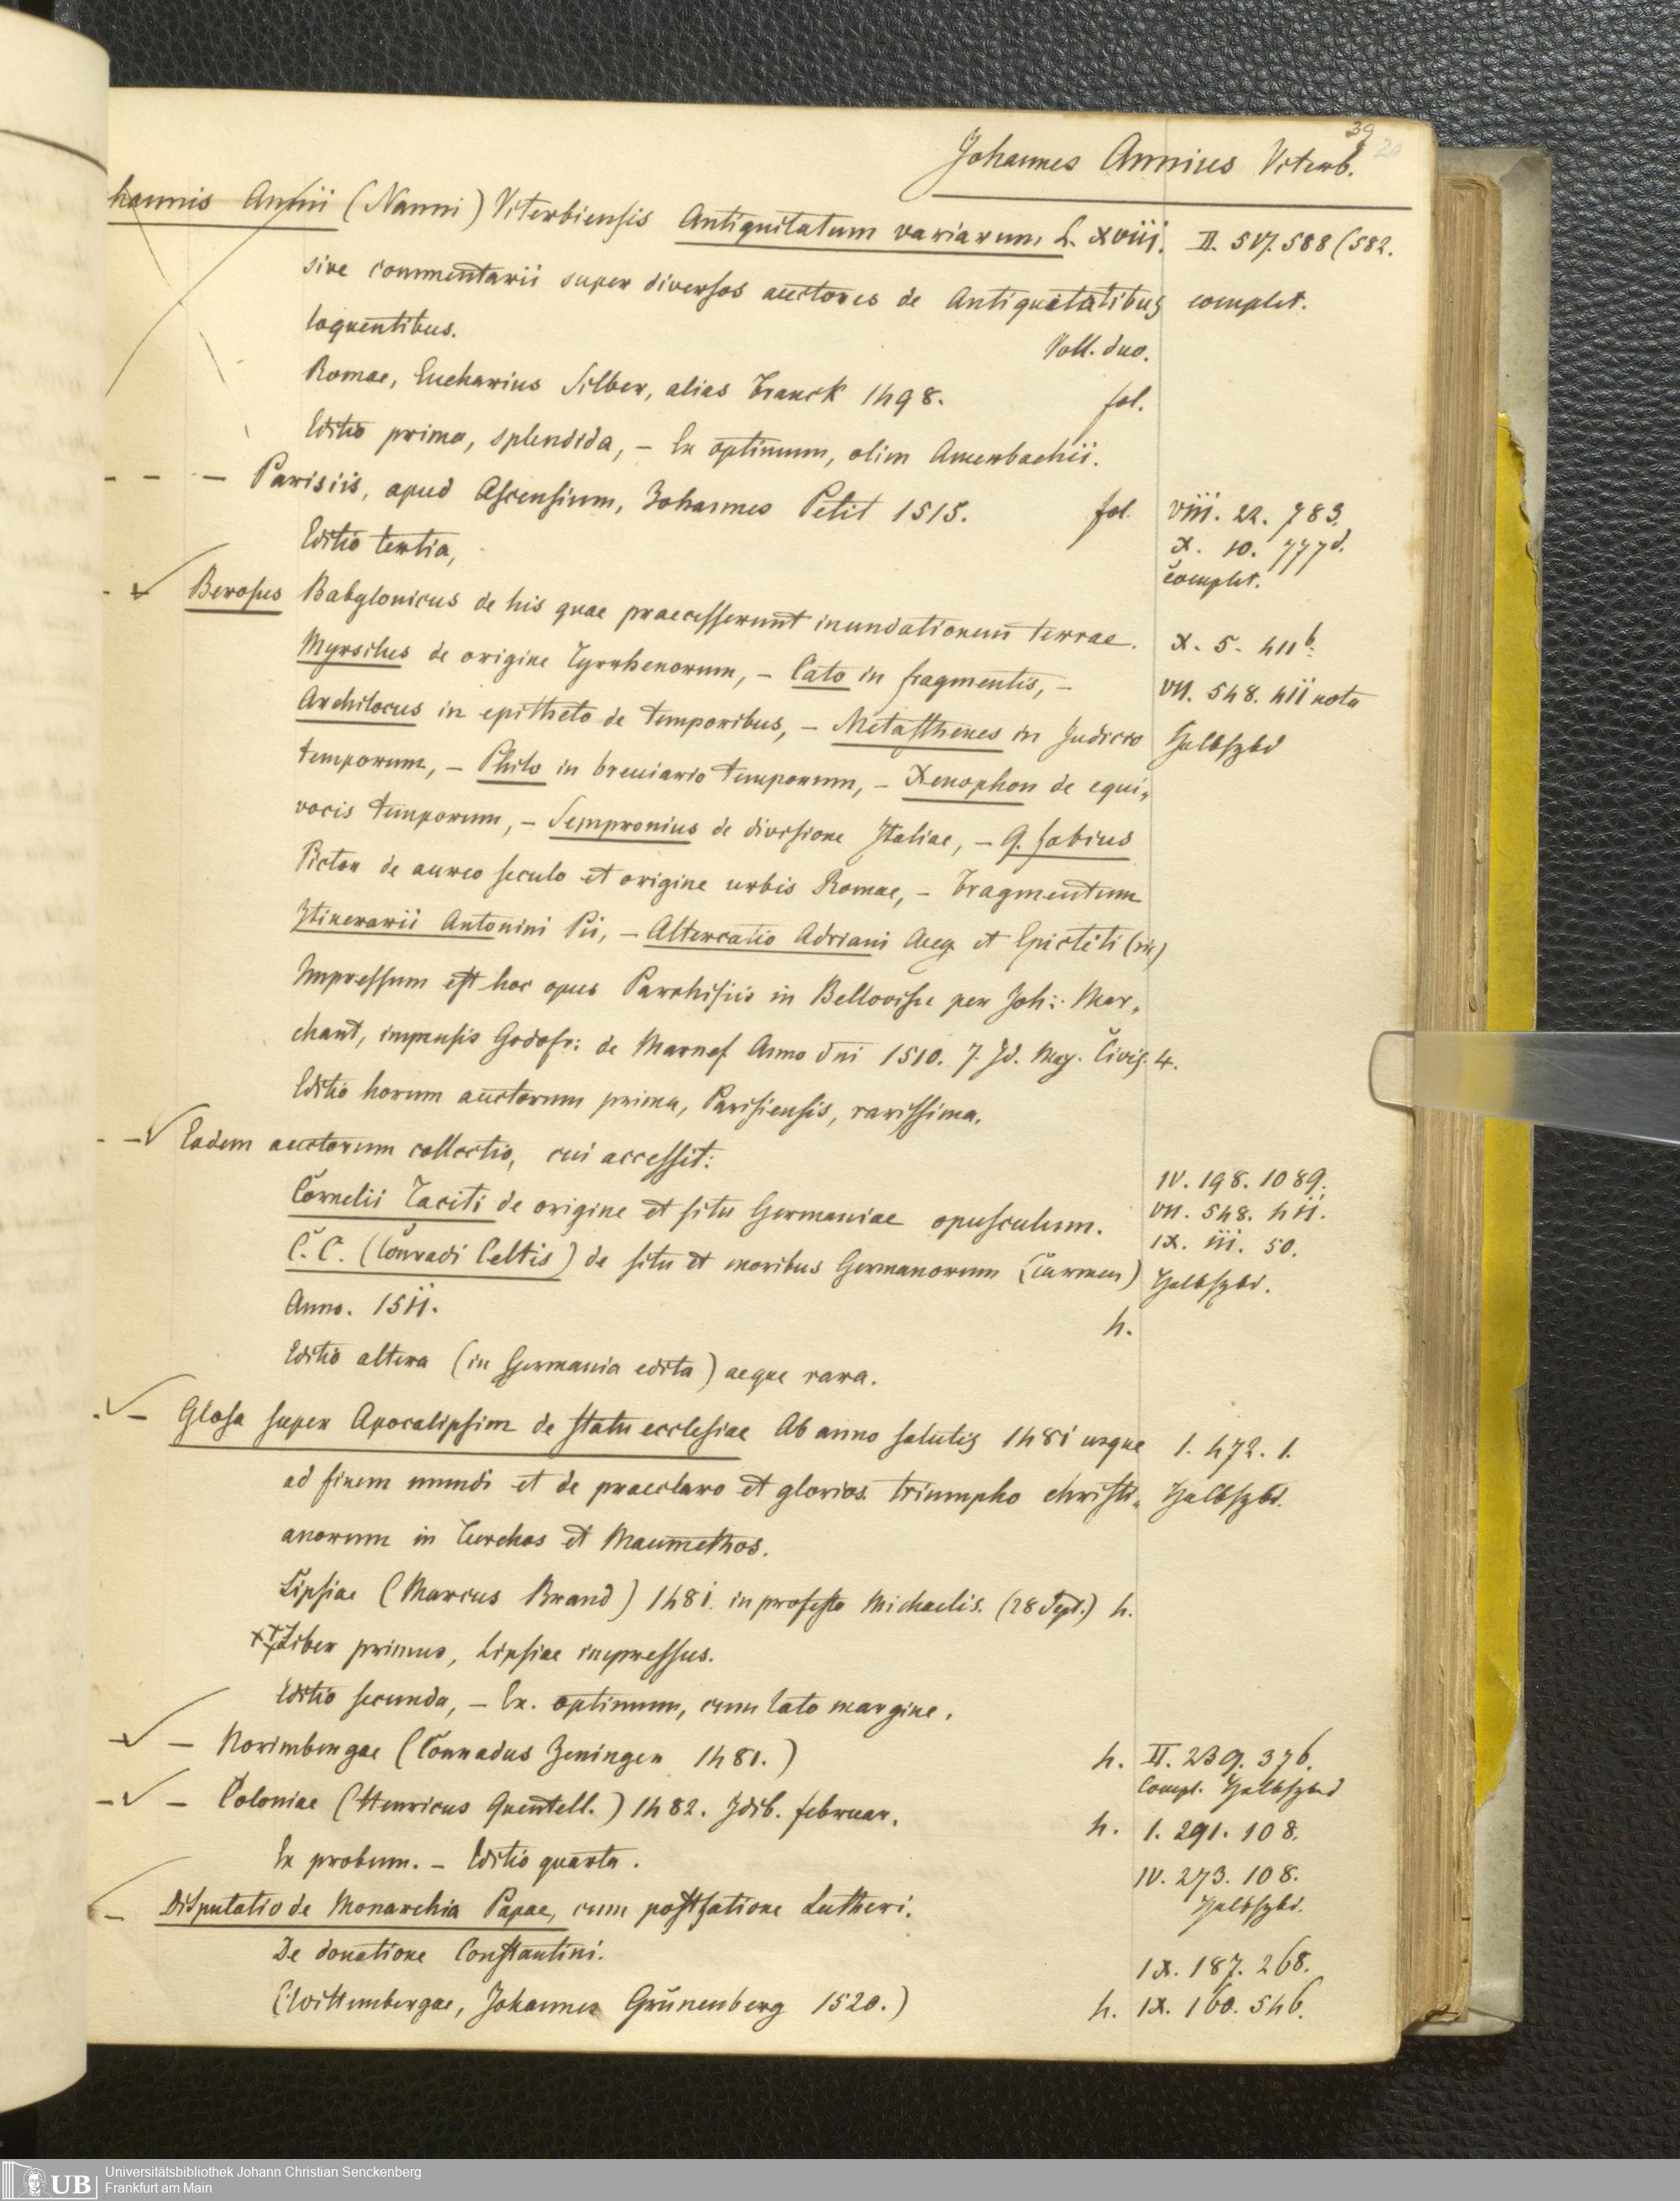 39
20
Johannes Annius Viterb.
hannis Annii (Nanni) Viterbiensis Antiquitatum variarum L. xviij. II. 517. 588 (582.
sive commentarii super diversos auctores de Antiquitatibus complet.
loquentibus. Voll. duo.
Romae, Eucharius Silber, alias Franck 1498. fol.
Editio prima, splendida, – Ex optimum, olim Amerbachii.
– – – Parisiis, apud Ascensium, Johannes Petit 1515. fol. VIII. 22. 783.
X. 10. 777d.
Editio tertia, complet.
Berosus Babylonicus de his quae praecesserunt inundationem terrae. X. 5. 411b.
Myrsilus de origine Tyrrhenorum, – Cato in fragmentis, – VII. 548. 411 nota
Archilocus in epitheto de temporibus, – Metasthenes in Judicio Halbfzbd
temporum, – Philo in breuiario temporum, – Xenophon de equi„
vocis temporum, – Sempronius de divisione Italiae, – Q. Fabius
Pictor de aureo seculo et origine urbis Romae, – Fragmentum
Itinerarii Antonini Pii, – Altercatio Adriani Aug et Epicteti (sic)
Impressum est hoc opus Parrhisiis in Bellovisu per Joh: Mar„
chant, impensis Godofr: de Marnef Anno dni 1510. 7. Id. May. Civis. 4.
Editio horum auctorum prima, Parisiensis, rarissima.
Eadem auctorum collectio, cui accessit:
IV. 198. 1089.
Cornelii Taciti de origine et situ Germaniae opusculum. VII. 548. 411.
IX. 111. 50.
C. C. (Conradi Celtis) de situ et moribus Germanorum (Carmen) Halbfzbd.
Anno. 1511. 4.
Editio altera (in Germania edita) aeque rara.
– Glosa super Apocalipsim de statu ecclesiae Ab anno salutis 1481 usque I. 472. 1.
ad finem mundi et de praeclaro et glorios. triumpho christi„ Halbfzbd.
anorum in Turchos et Maumethos.
Lipsiae (Marcus Brand) 1481. in profesto Michaelis. (28 Sept.) 4.
Liber primus, Lipsiae impressus.
Editio secunda, – Ex. optimum, cum lato margine.
– Norimbergae (Conradus Zeninger 1481.) 4. II. 239. 376.
Compl. Halbfzbd
– Coloniae (Henricus Quentell.) 1482. Idib. februar. 4. I. 291. 108.
Ex probum. – Editio quarta. IV. 273. 108.
Halbfzbd.
– Disputatio de Monarchia Papae, cum postfatione Lutheri.
De donatione Constantini. IX. 187. 268.
(Wittembergae, Johannes Grünenberg 1520.) 4. IX. 160. 546.
UB
Universitätsbibliothek Johann Christian Senckenberg
Frankfurt am Main